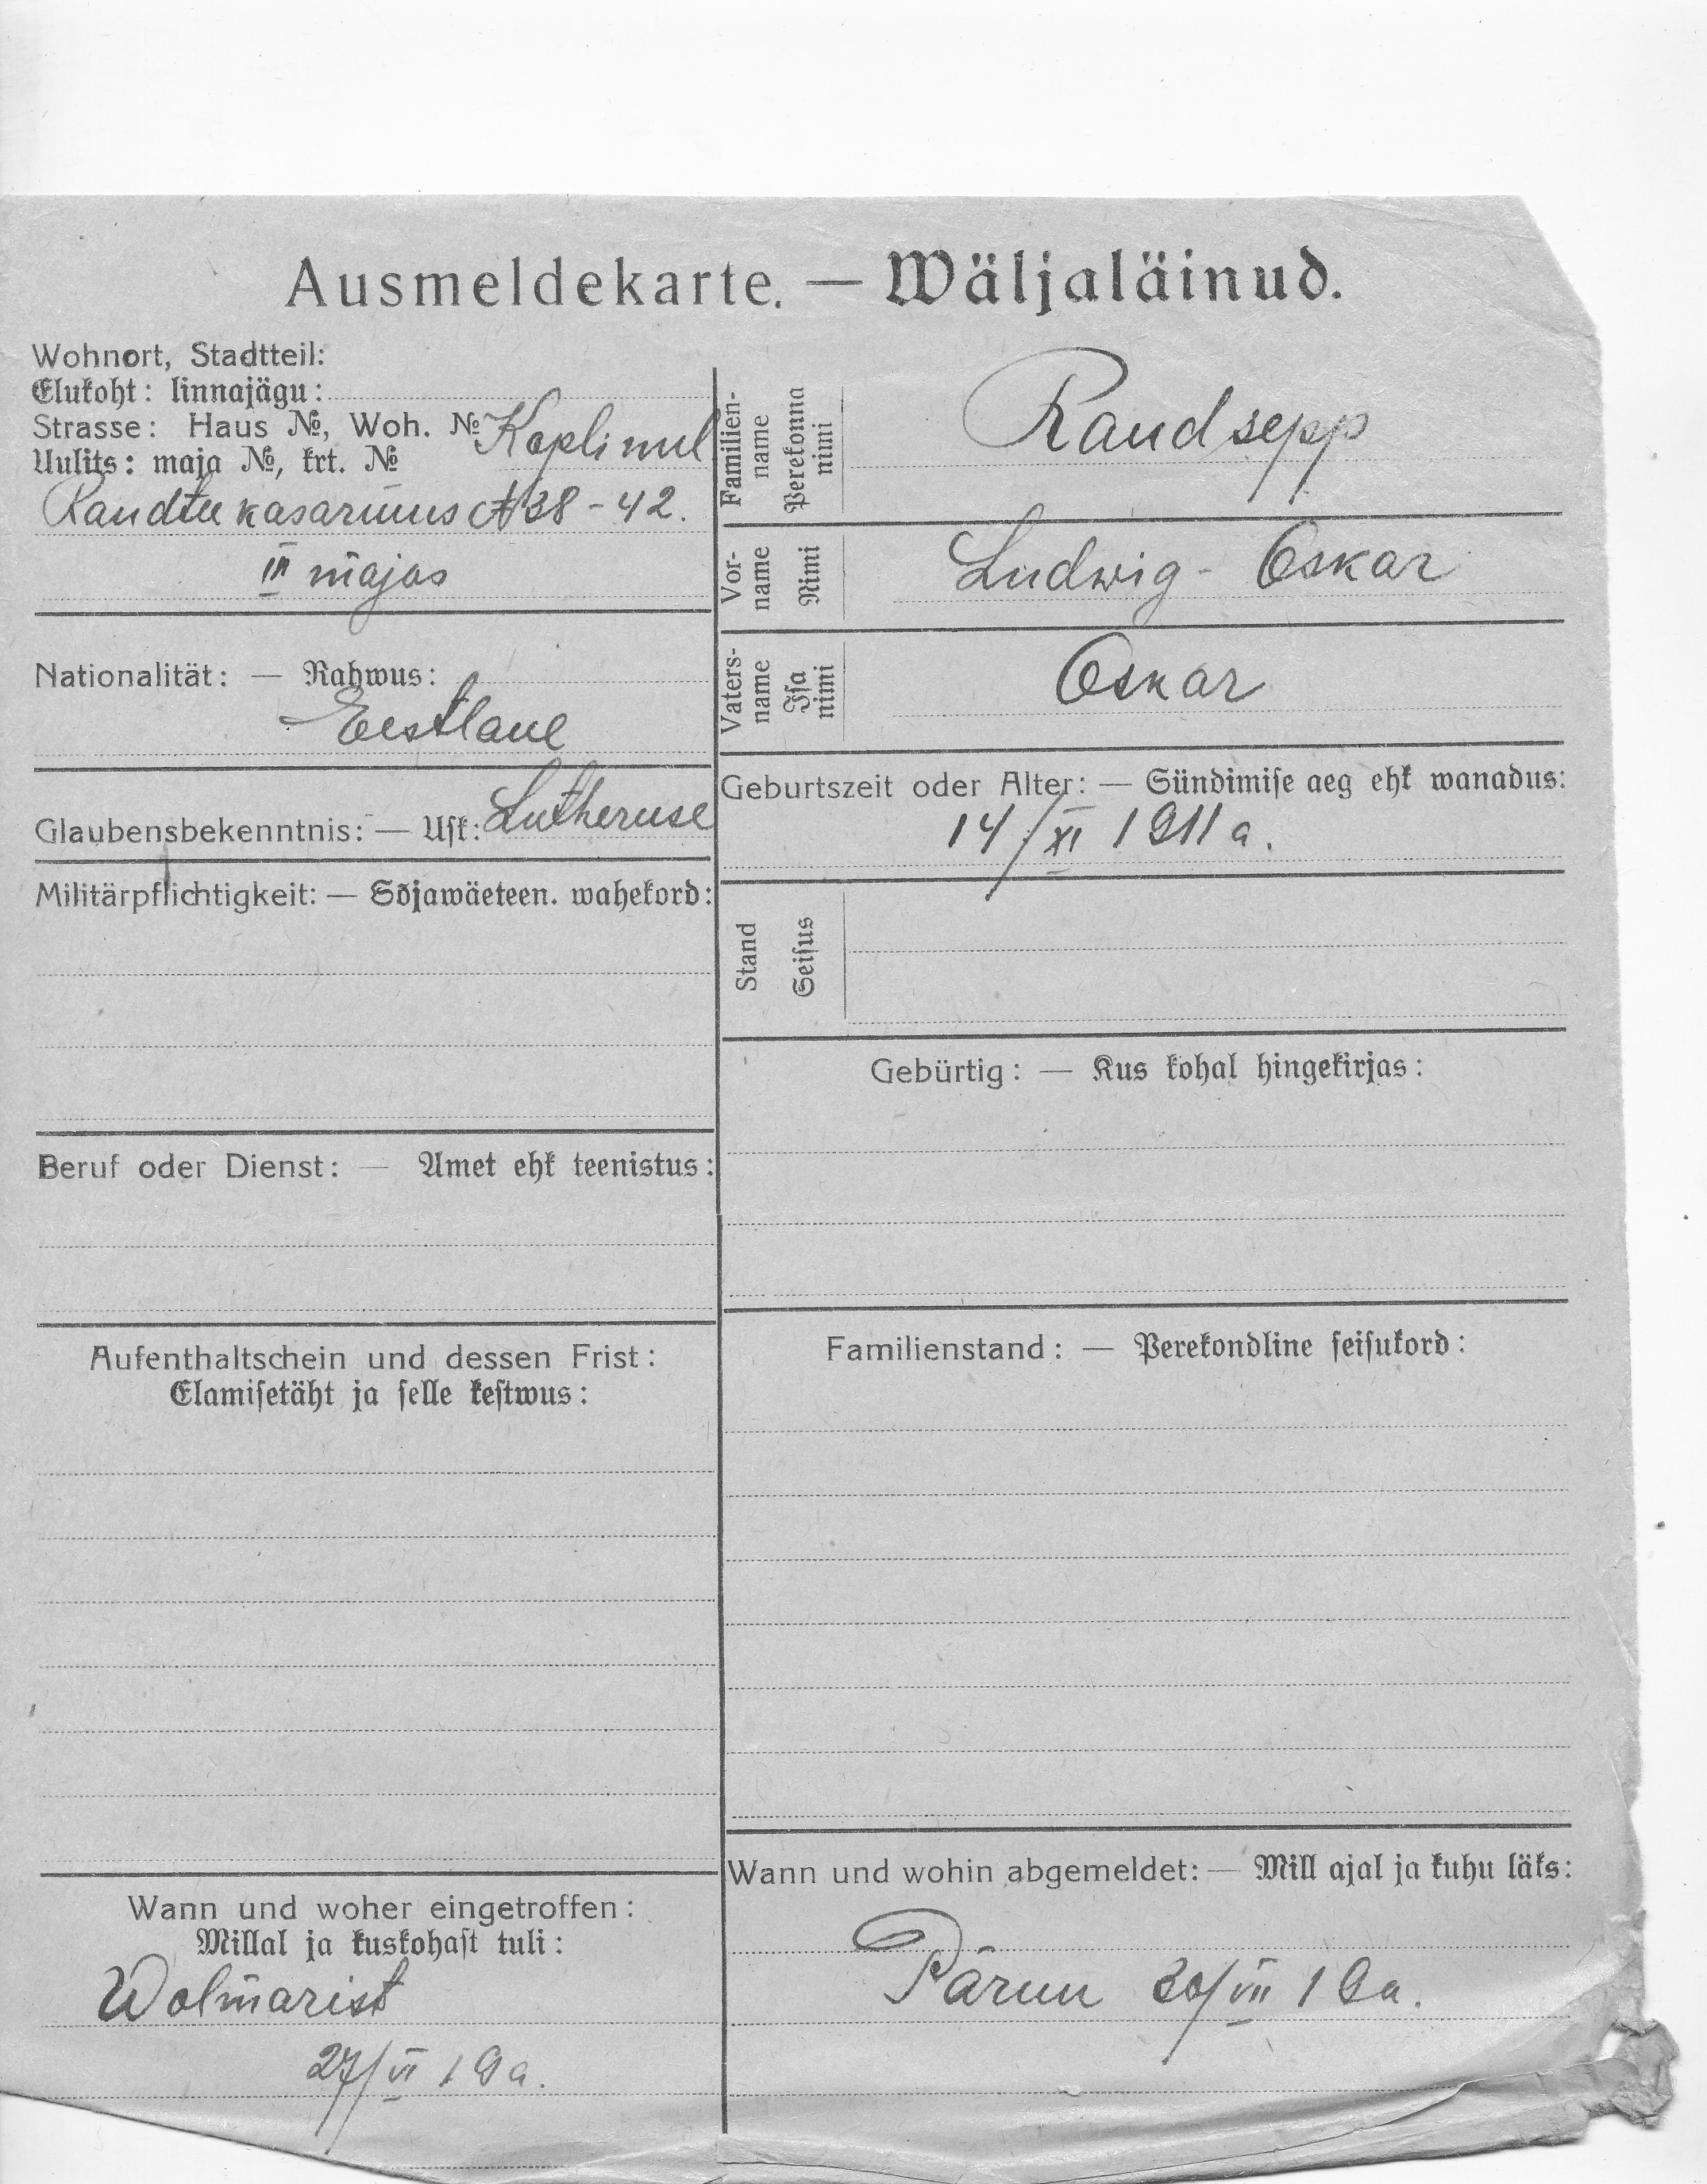 Ausmeldekarte. — Wäljaläinud.
Wohnort, Stadtteil:
Elukoht: linnajägu:
Strasse: Haus №, Woh. №
Uulits: maja №, krt. №
Kopli mul
Randtee kasarmus № 38 - 42.
III majas
Familien-name
Perekonna nimi
Raudsepp
Vor-name
Nimi
Ludwig - Oskar
Vaters-name
Isa nimi
Oskar
Nationalität: — Rahwus:
Eestlane
Glaubensbekenntnis: — Usk: Lutheruse
Geburtszeit oder Alter: — Sündimise aeg ehk wanadus:
14/XI 1911 a.
Militärpflichtigkeit: — Sõjawäeteen. wahekord:
Stand
Seisus
Gebürtig: — Kus kohal hingekirjas:
Beruf oder Dienst: — Amet ehk teenistus:
Aufenthaltschein und dessen Frist:
Elamisetäht ja selle kestwus:
Familienstand: — Perekondline seisukord:
Wann und woher eingetroffen:
Millal ja kuskohast tuli:
Wolmarist
27/VI 19 a.
Wann und wohin abgemeldet: — Mill ajal ja kuhu läks:
Pärnu 30/VII 19 a.